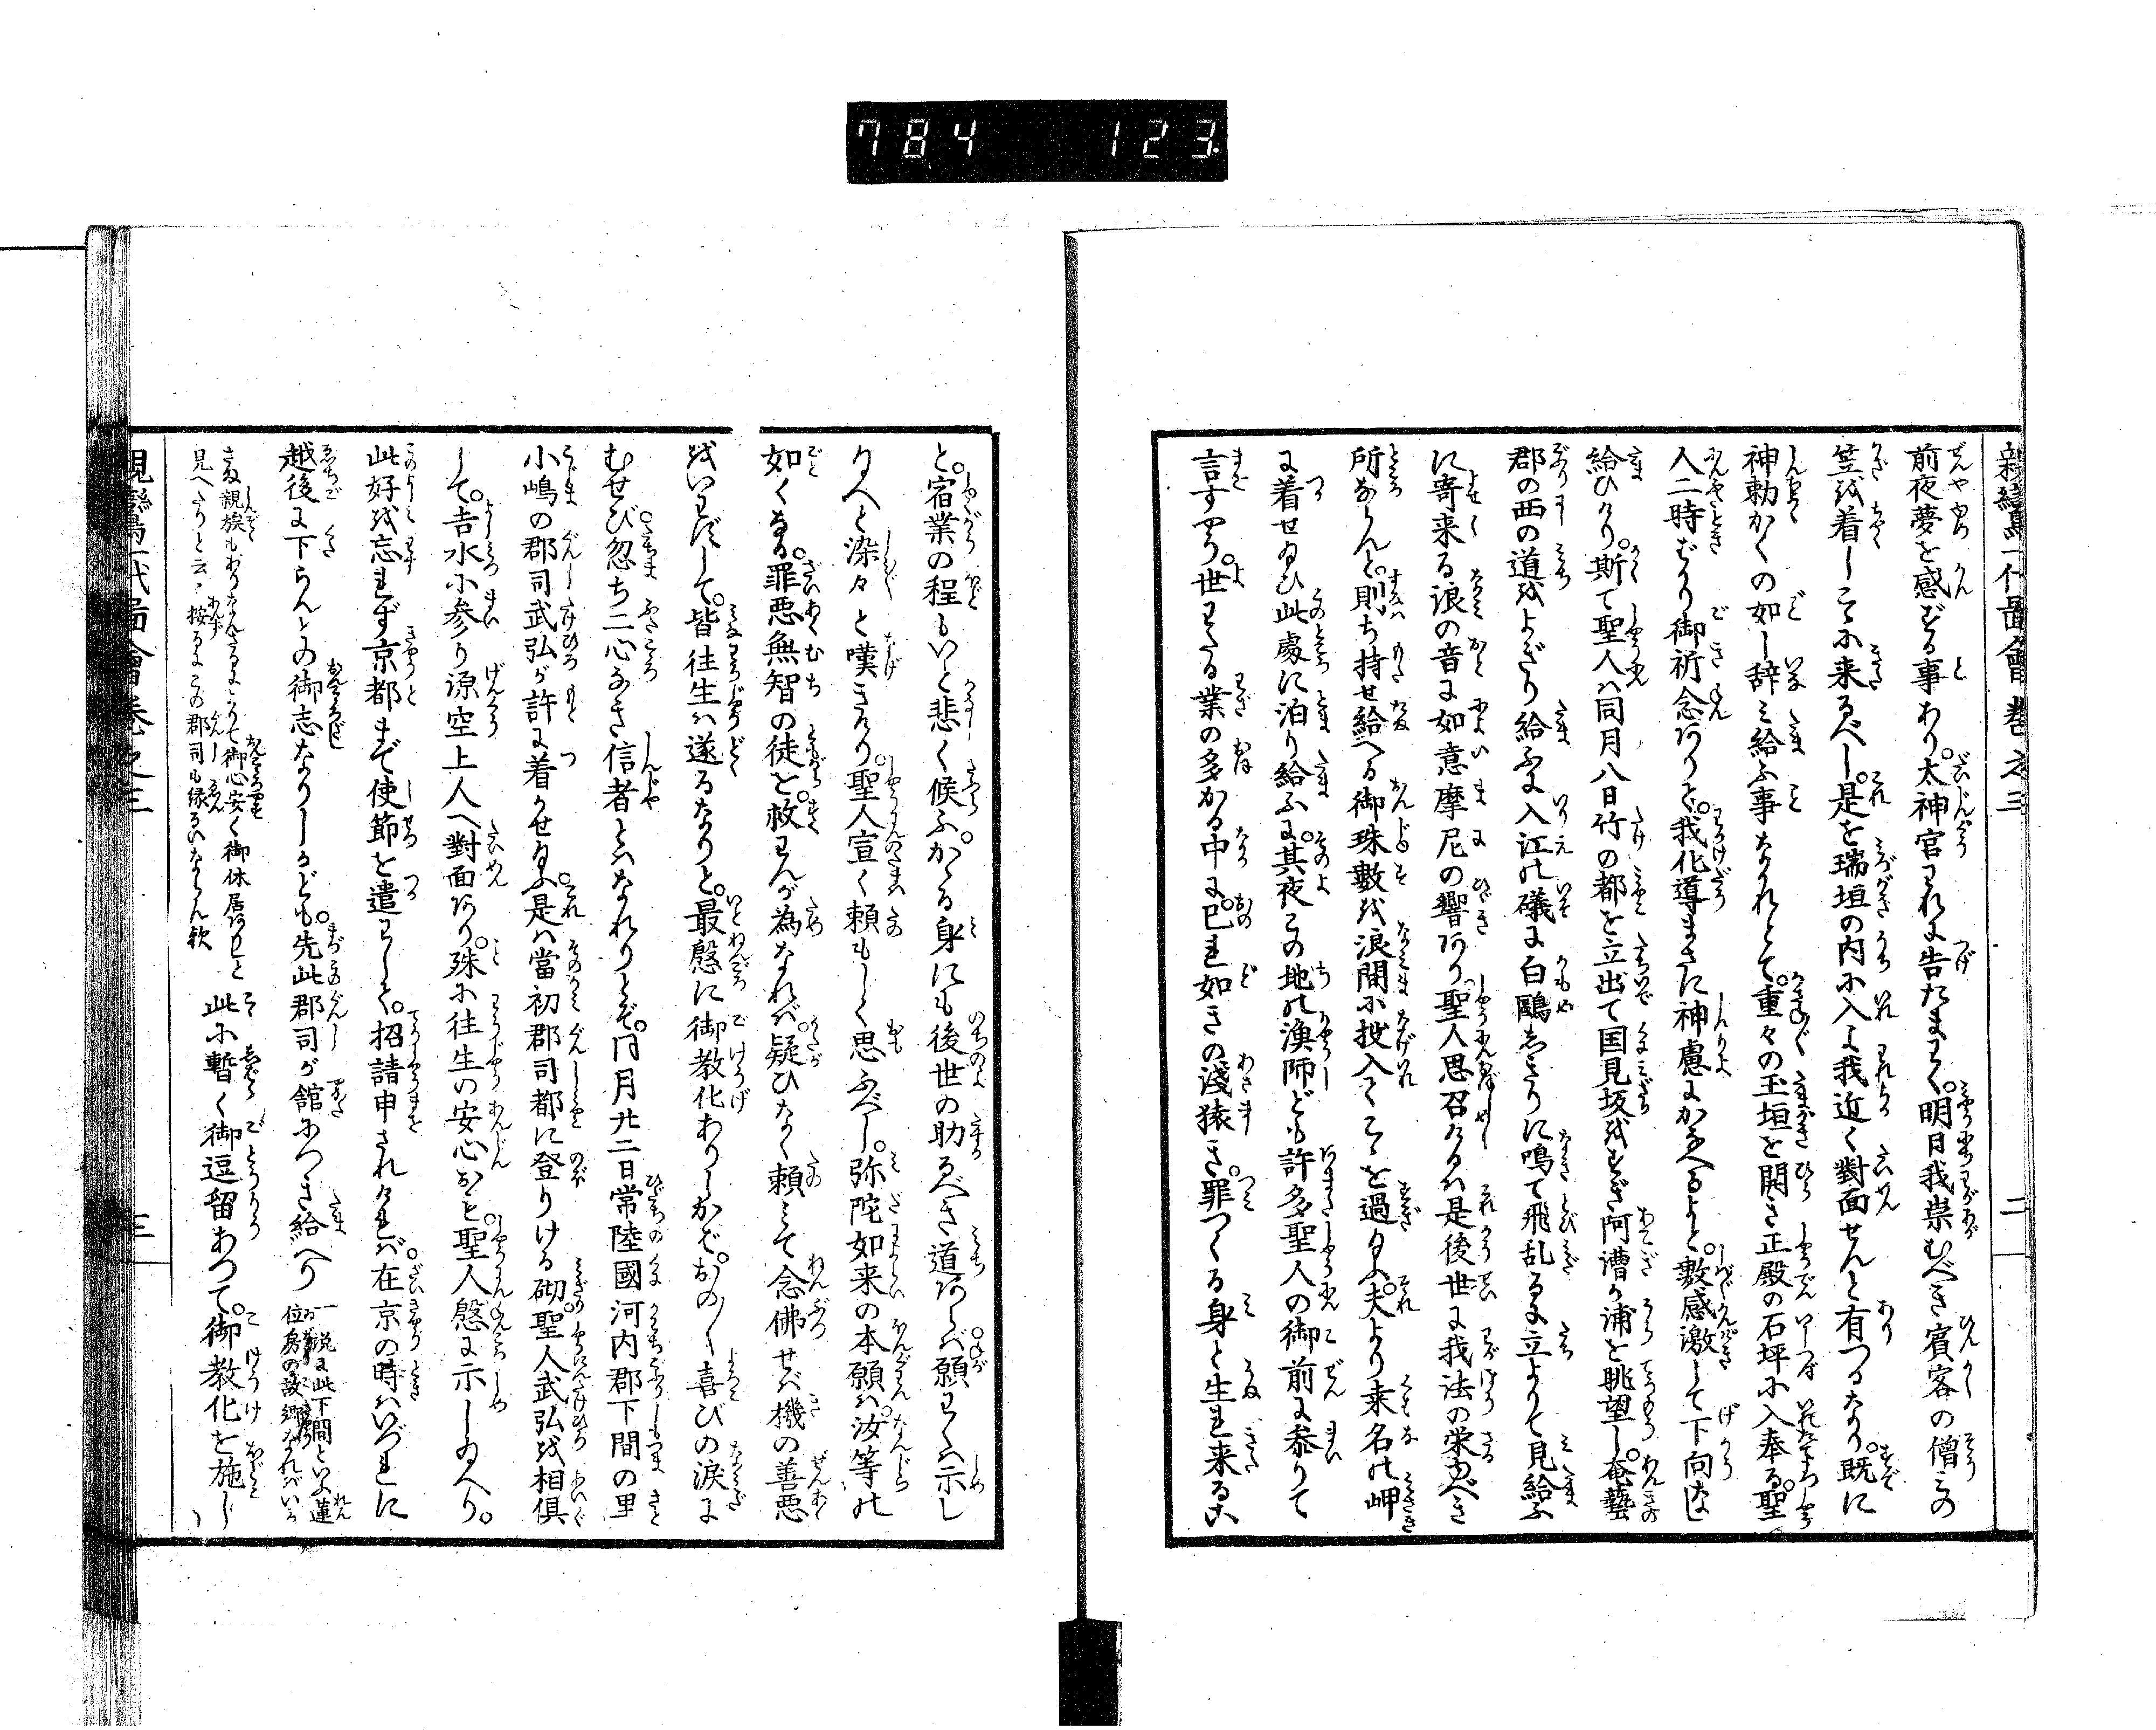 784 123
親鸞一代圖會巻之三
二
前夜夢を感ずる事あり。太神宮われに告たまはく。明日我崇むべき賓客の僧この
笠を着しこゝに来るべし。是を瑞垣の内に入よ我近く對面せんと有つるなり。既に
神勅かくの如し辞み給ふ事なかれとて。重々の玉垣を開き正殿の石坪に入奉る。聖
人二時ばかり御祈念ありと。我化導まさに神慮にかなへるよと。數感激して下向なし
給ひけり。斯て聖人は同月八日竹の都を立出て国見坂をすぎ阿漕が浦を眺望し。奄藝
郡の西の道をよぎり給ふに入江の礒に白鷗しきりに鳴て飛乱るゝに立よりて見給ふ
に寄来る浪の音に如意摩尼の響あり。聖人思召けるは是後世に我法の栄ふべき
所ならんと。則ち持せ給へる御珠數を浪間に投入てこゝを過給ふ。夫より来名の岬
に着せ給ひ此處に泊り給ふに。其夜この地の漁師ども許多聖人の御前に參りて
言すやう。世わたる業の多かる中に。己れ如きの淺猿き。罪つくる身と生れ来るこ
と。宿業の程もいと悲く候ふ。かゝる身にも後世の助るべき道あらば願わくは示し
給へと染々と嘆きけり。聖人宣く頼もしく思ふべし。弥陀如来の本願は。汝等の
如くなる。罪悪無智の徒を。救わんが為なれば。疑ひなく頼みて念佛せば機の善悪
をいわずして。皆往生は遂るなりと。最慇に御教化ありしかば。おの〳〵喜びの涙に
むせび。忽ち二心なき信者とはなれりとぞ。同月廿二日常陸國河内郡下間の里
小嶋の郡司武弘が許に着かせ給ふ。是は當初郡司都に登りける砌。聖人武弘を相倶
して。吉水に参り源空上人へ對面あり。殊に往生の安心など。聖人慇に示し給へり。
此好を忘れず京都まで使節を遣わして。招請申されければ。在京の時はいづれに
越後に下らんとの御志なりしかども。先此郡司が舘につき給へり
一説に此下間といふ蓮
位房の故郷なればいか
さま親族もありなんさるによりて御心安く御休居ありしと
見へたりと云々按るにこの郡司も縁るいならん歟
此に暫く御逗留あつて。御教化を施し
親鸞一代圖會巻之三
三